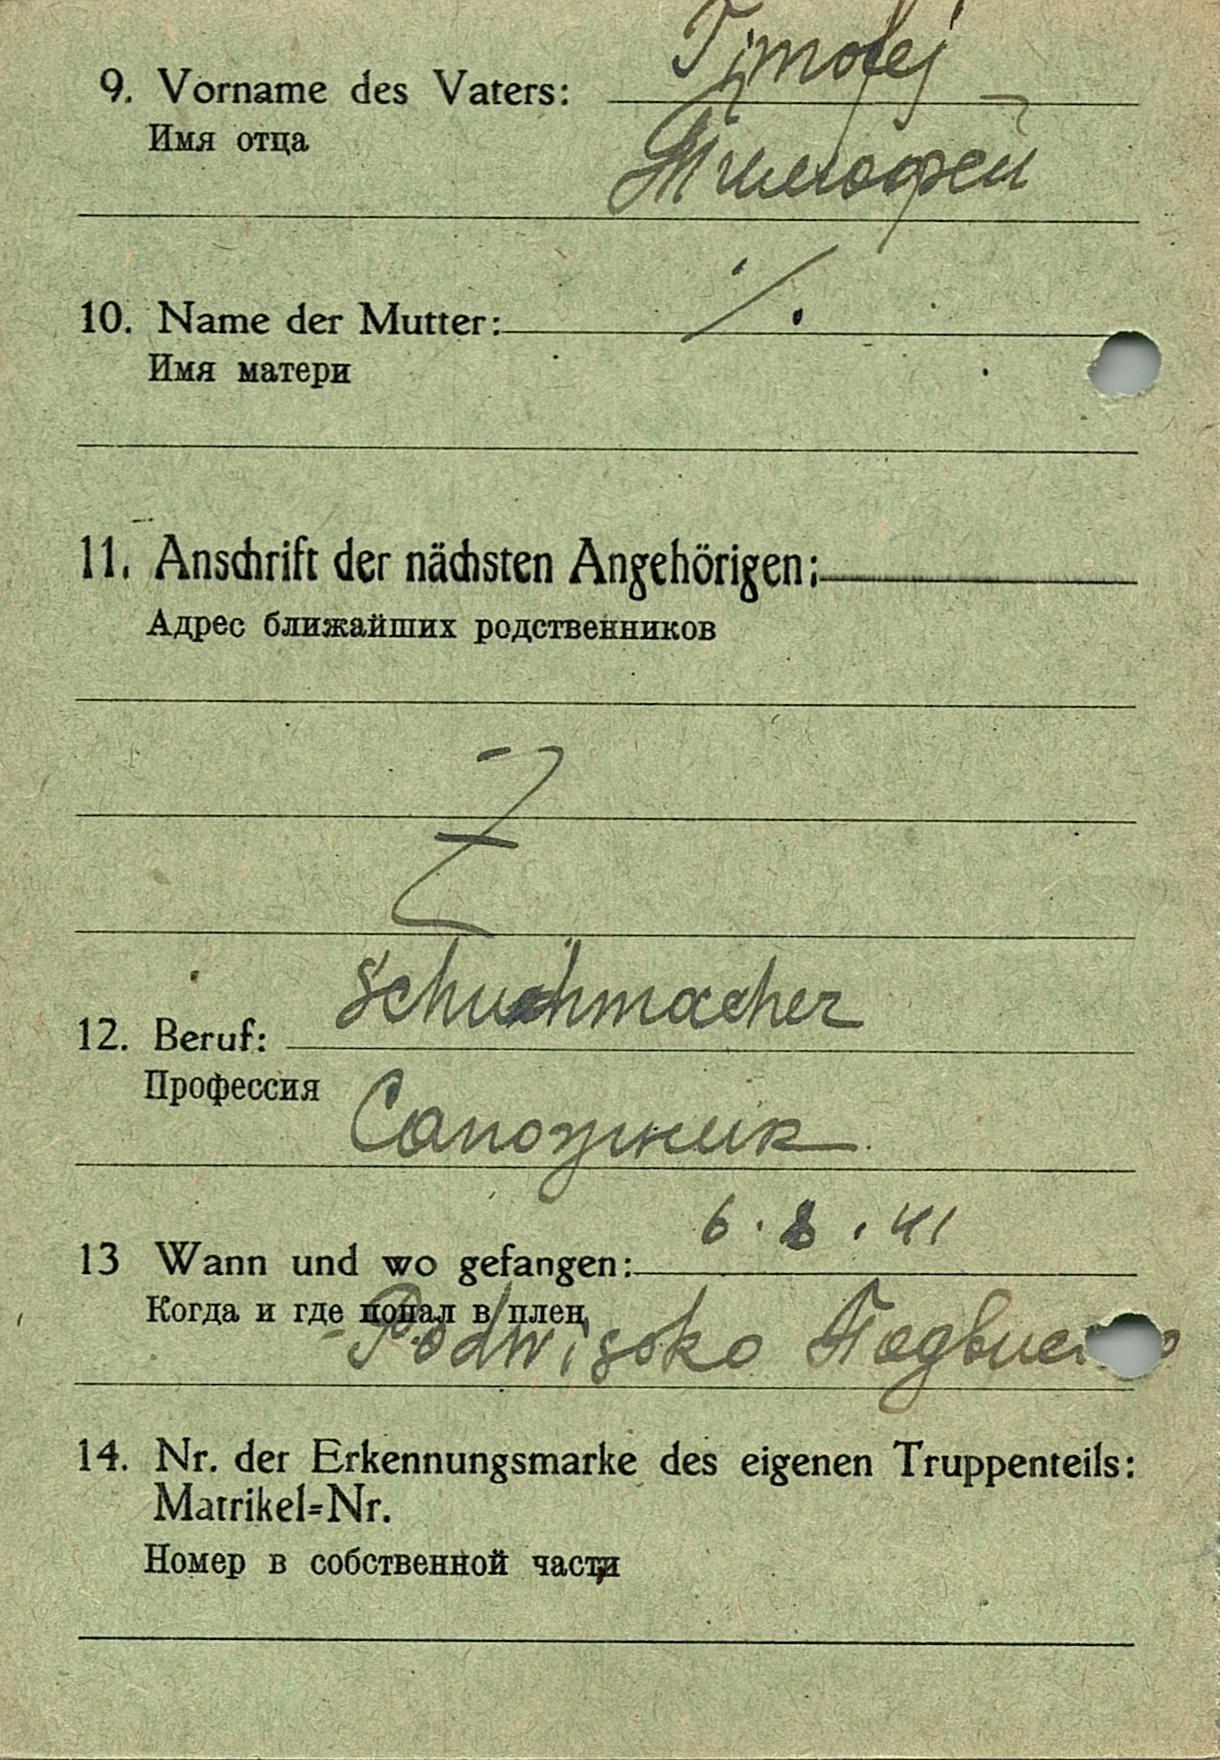 Tjmofej
9. Vorname des Vaters:
Имя отца
Тимофей
10. Name der Mutter: ⁒
Имя матери
11. Anschrift der nächsten Angehörigen:
Адрес ближайших родственников
schuhmacher
12. Beruf:
Профессия
Сапожник
6.8.41
13 Wann und wo gefangen:
Когда и где попал в плен
- Podwisoko
14. Nr. der Erkennungsmarke des eigenen Truppenteils:
Matrikel=Nr.
Номер в собственной части